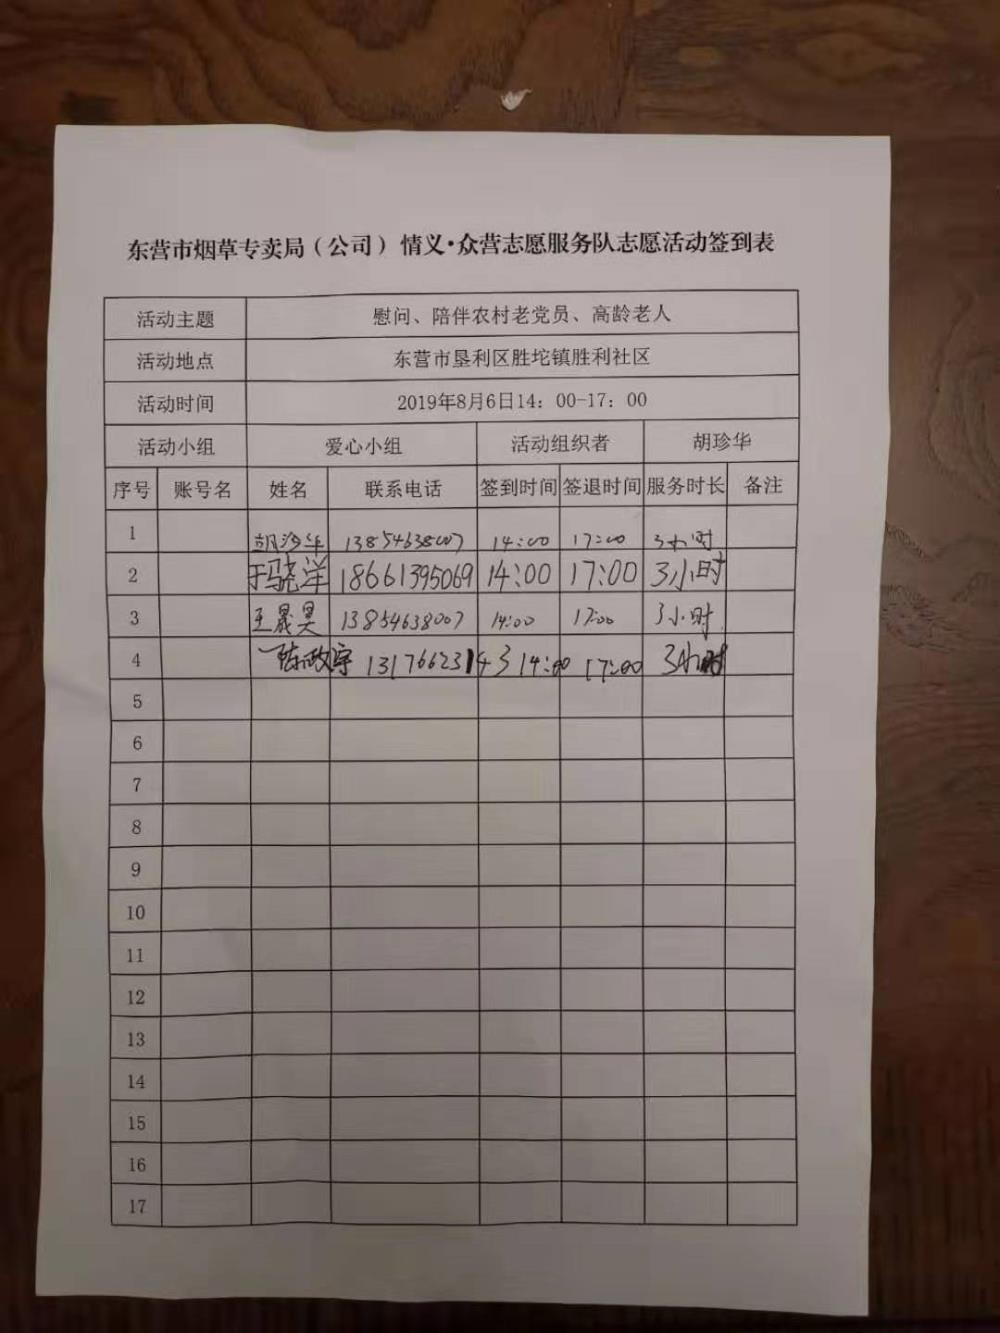 东营市烟草专卖局（公司）情义·众营志愿服务队志愿活动签到表
活动主题 慰问、陪伴农村老党员、高龄老人
活动地点 东营市垦利区胜坨镇胜利社区
活动时间 2019年8月6日14：00-17：00
活动小组 爱心小组 活动组织者 胡珍华
序号 账号名 姓名 联系电话 签到时间 签退时间 服务时长 备注
1 胡珍华 13854638007 14:00 17:00 3小时
2 于骁洋 18661395069 14:00 17:00 3小时
3 王晟昊 13854638007 14:00 17:00 3小时
4 陈政宇 13176623143 14:00 17:00 3小时
5
6
7
8
9
10
11
12
13
14
15
16
17